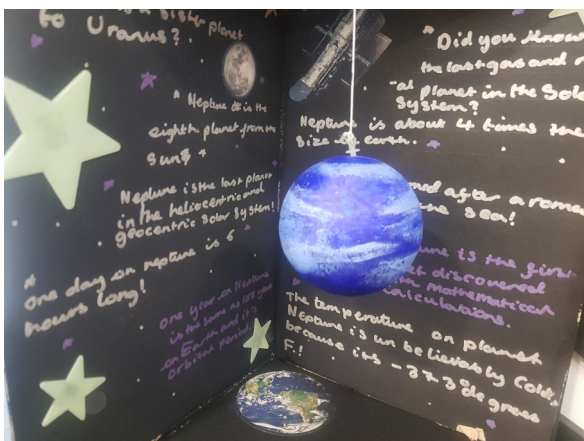 a sister planet
to Uranus?
"Neptune is the
eighth planet from the
Sun
Neptune is the last planet
in the heliocentric and
geocentric Solar System!
one day on neptune is 6
hours long!
one year on Neptune
is the same as 165 years
on Earth and it's
orbital period,
"Did you know
the last gas and
al planet in the Sola
System?
Neptune is about 4 times the
Size earth.
med after a roma
the sea!
une is the first
et discovered
th Mathematical
calculations.
The temperature on planet
Neptune is un believably cold,
because its -373 degrees
F.!